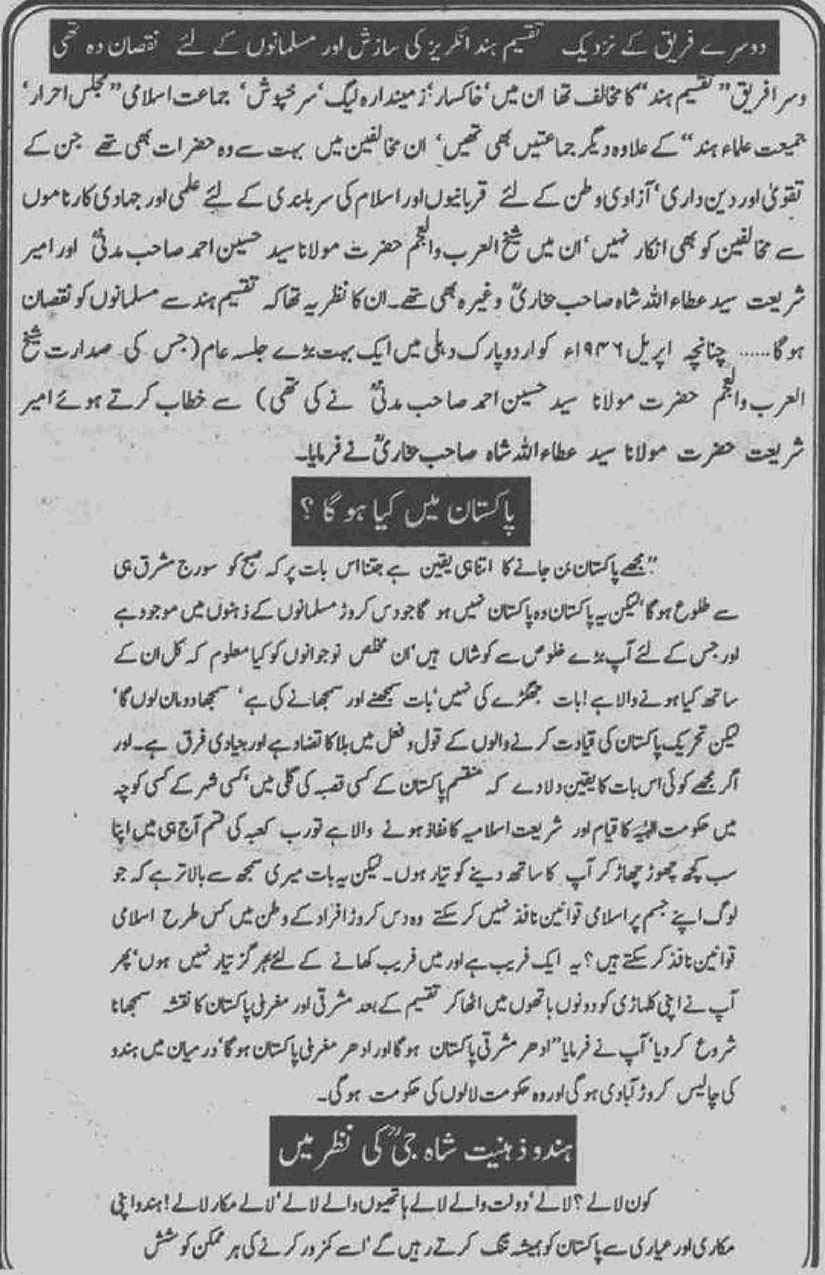 دوسرے فریق کے نزدیک تقسیم ہند انگریز کی سازش اور مسلمانوں کے لئے نقصان دہ تھی
وسرا فریق ”تقسیم ہند“ کا مخالف تھا ان میں ’خاکسار‘ زمیندارہ لیگ‘ سرخپوش‘ جماعت اسلامی ”مجلس احرار‘
جمیعت علماء ہند“ کے علاوہ دیگر جماعتیں بھی تھیں‘ ان مخالفین میں بہت سے وہ حضرات بھی تھے جن کے
تقویٰ اور دین داری‘ آزادی وطن کے لئے قربانیوں اور اسلام کی سربلندی کے لئے علمی اور جہادی کارناموں
سے مخالفین کو بھی انکار نہیں‘ ان میں شیخ العرب والعجم حضرت مولانا سید حسین احمد صاحب مدنیؒ اور امیر
شریعت سید عطاء اللہ شاہ صاحب بخاریؒ وغیرہ بھی تھے۔ ان کا نظریہ تھا کہ تقسیم ہند سے مسلمانوں کو نقصان
ہوگا...... چنانچہ اپریل ۱۹۴۶ء کو اردو پارک دہلی میں ایک بہت بڑے جلسہ عام (جس کی صدارت شیخ
العرب والعجم حضرت مولانا سید حسین احمد صاحب مدنیؒ نے کی تھی) سے خطاب کرتے ہوئے امیر
شریعت حضرت مولانا سید عطاء اللہ شاہ صاحب بخاریؒ نے فرمایا۔
پاکستان میں کیا ہوگا ؟
”مجھے پاکستان بن جانے کا اتنا ہی یقین ہے جتنا اس بات پر کہ صبح کو سورج مشرق ہی
سے طلوع ہوگا‘ لیکن یہ پاکستان وہ پاکستان نہیں ہوگا جو دس کروڑ مسلمانوں کے ذہنوں میں موجود ہے
اور جس کے لئے آپ بڑے خلوص سے کوشاں ہیں‘ ان مخلص نوجوانوں کو کیا معلوم کہ کل ان کے
ساتھ کیا ہونے والا ہے! بات جھگڑے کی نہیں‘ بات سمجھنے اور سمجھانے کی ہے‘ سمجھا دو مان لوں گا‘
لیکن تحریک پاکستان کی قیادت کرنے والوں کے قول و فعل میں بلا کا تضاد ہے اور بنیادی فرق ہے۔ اور
اگر مجھے کوئی اس بات کا یقین دلا دے کہ منقسم پاکستان کے کسی قصبہ کی گلی میں‘ کسی شہر کے کسی کوچہ
میں حکومت الہٰیہ کا قیام اور شریعت اسلامیہ کا نفاذ ہونے والا ہے تو رب کعبہ کی قسم آج ہی میں اپنا
سب کچھ چھوڑ چھاڑ کر آپ کا ساتھ دینے کو تیار ہوں۔ لیکن یہ بات میری سمجھ سے بالاتر ہے کہ جو
لوگ اپنے جسم پر اسلامی قوانین نافذ نہیں کر سکتے وہ دس کروڑ افراد کے وطن میں کس طرح اسلامی
قوانین نافذ کر سکتے ہیں؟ یہ ایک فریب ہے اور میں فریب کھانے کے لئے ہرگز تیار نہیں ہوں‘ پھر
آپ نے اپنی کلہاڑی کو دونوں ہاتھوں میں اٹھا کر تقسیم کے بعد مشرقی اور مغربی پاکستان کا نقشہ سمجھانا
شروع کر دیا‘ آپ نے فرمایا ”ادھر مشرقی پاکستان ہوگا اور ادھر مغربی پاکستان ہوگا‘ درمیان میں ہندو
کی چالیس کروڑ آبادی ہوگی اور وہ حکومت لالوں کی حکومت ہوگی۔
ہندو ذہنیت شاہ جیؒ کی نظر میں
کون لالے؟ لالے‘ دولت والے لالے ہاتھیوں والے لالے‘ لالے مکار لالے! ہندو اپنی
مکاری اور عیاری سے پاکستان کو ہمیشہ تنگ کرتے رہیں گے‘ اسے کمزور کرنے کی ہر ممکن کوشش